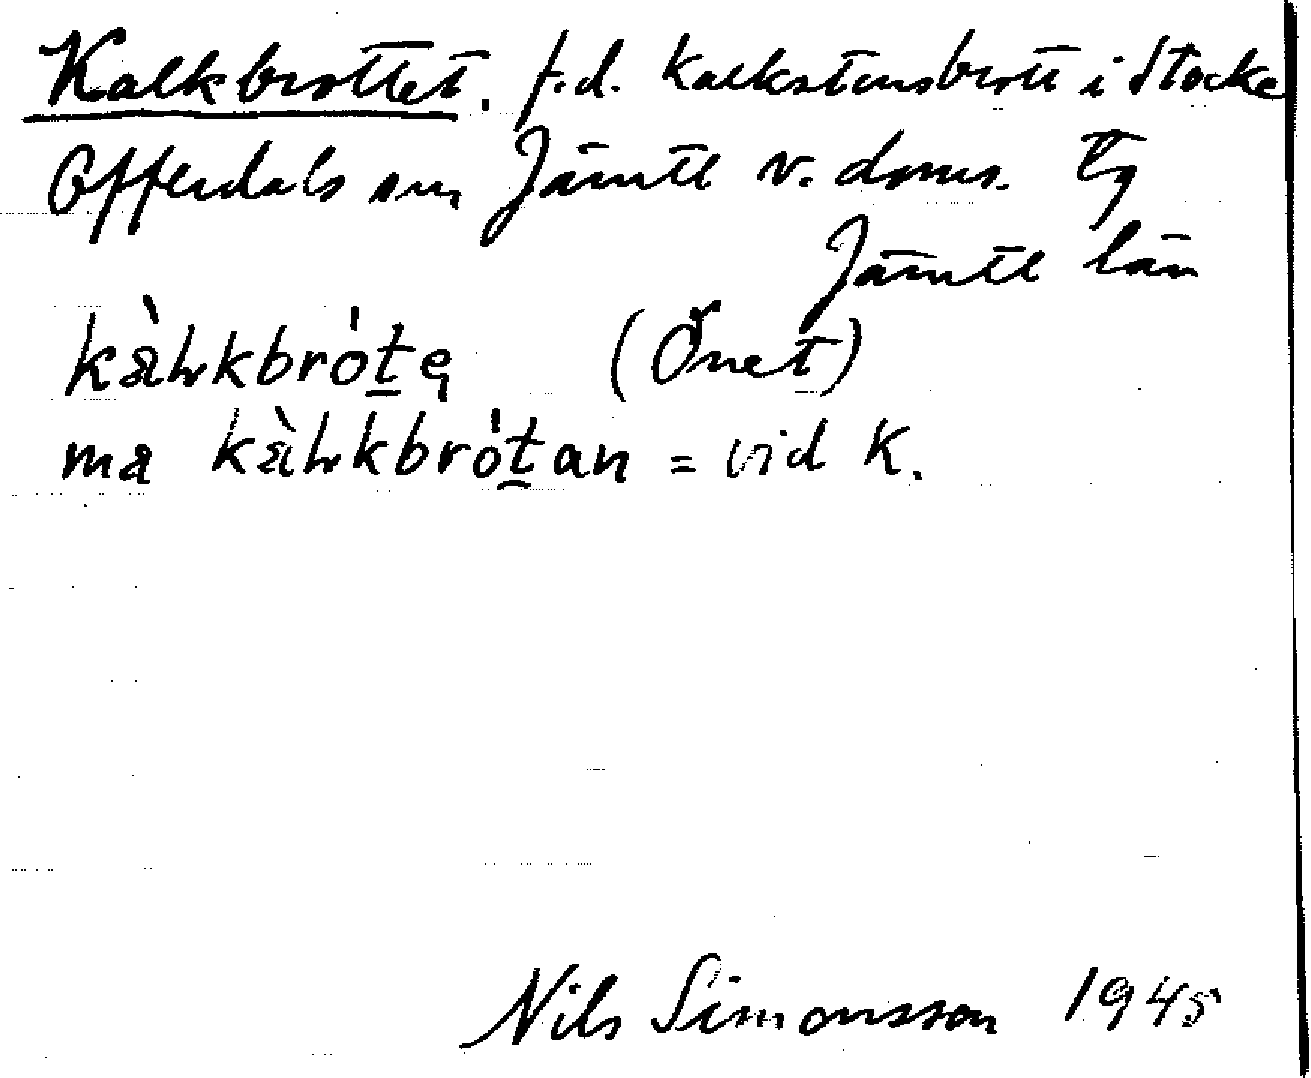 Kalkbrottet. f.d. kalkstensbrott i Stocke
Offerdals sn, Jämtl v. doms. Tg
Jämtl län
kàḷkbrót̠ę (Önet)
ma kàḷkbrót̠an = vid K.
Nils Simonsson 1945